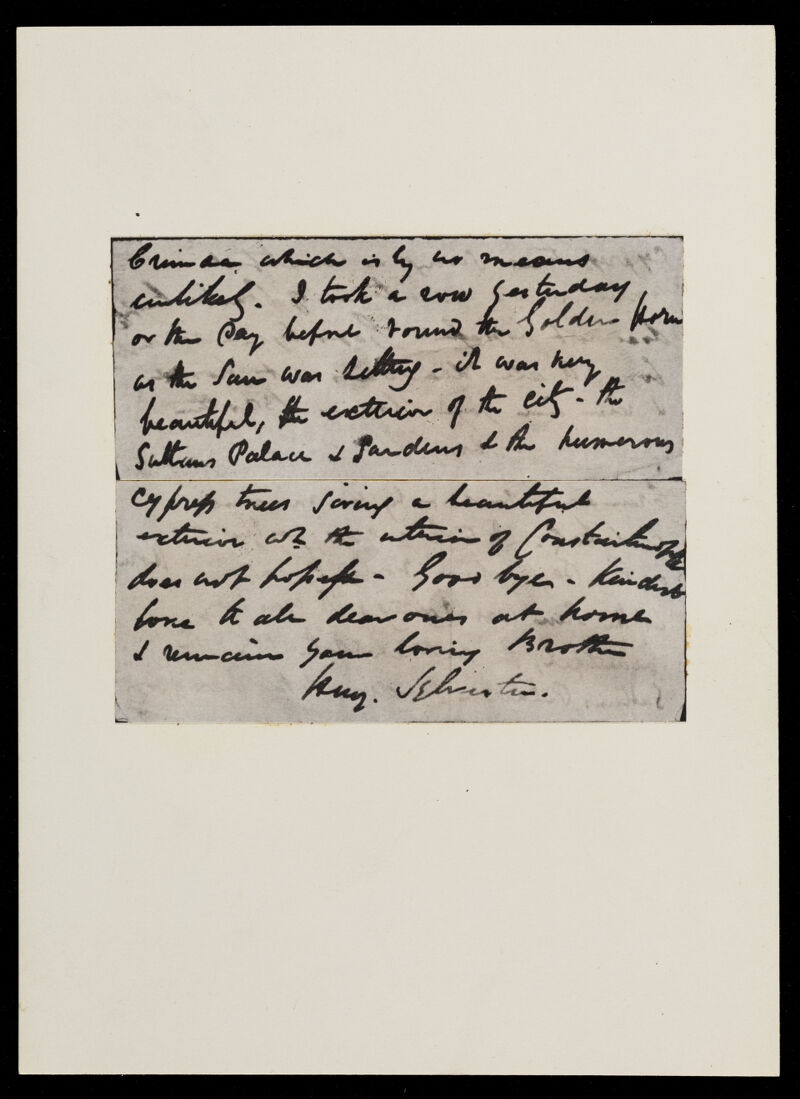 Crimea which is by no means
unlikely. I took a row yesterday
or the day before round the Golden Horn
as the Sun was setting - it was very
beautiful, the exterior of the city - the
Sultans Palace & Gardens & the numerous
cypress trees giving a beautiful
exterior wh the interior of Constantinople
does not possess - Good bye - Kindest
love to all dear ones at home
& remain your loving Brother
Hny. Sylvester.